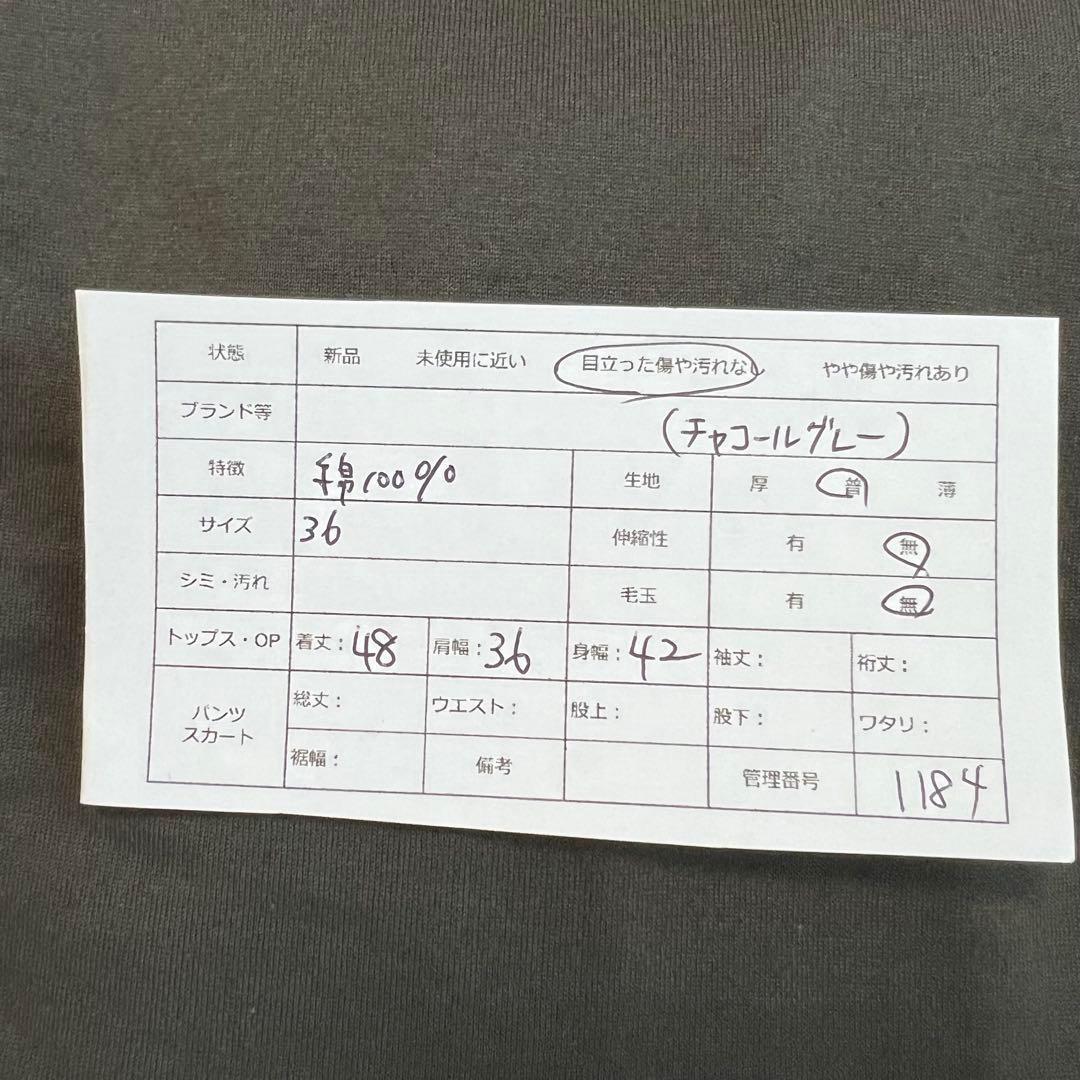 状態 新品 未使用に近い 目立った傷や汚れなし やや傷や汚れあり
ブランド等 (チャコールグレー)
特徴 綿100% 生地 厚 普 薄
サイズ 36 伸縮性 有 無
シミ・汚れ 毛玉 有 無
トップス・OP 着丈：48 肩幅：36 身幅：42 袖丈： 裄丈：
パンツ スカート 総丈： ウエスト： 股上： 股下： ワタリ：
裾幅： 備考 管理番号 1184